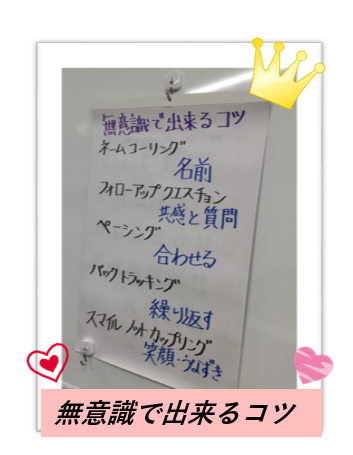 無意識で出来るコツ
ネームコーリング
名前
フォローアップクエスチョン
共感と質問
ペーシング
合わせる
バックトラッキング
繰り返す
スマイル ノットカップリング
笑顔・うなずき
無意識で出来るコツ